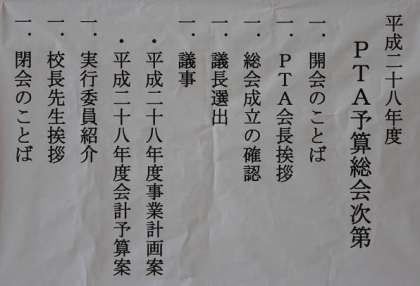 平成二十八年度
PTA予算総会次第
一．開会のことば
一．PTA会長挨拶
一．総会成立の確認
一．議長選出
一．議事
・平成二十八年度事業計画案
・平成二十八年度会計予算案
一．実行委員紹介
一．校長先生挨拶
一．閉会のことば